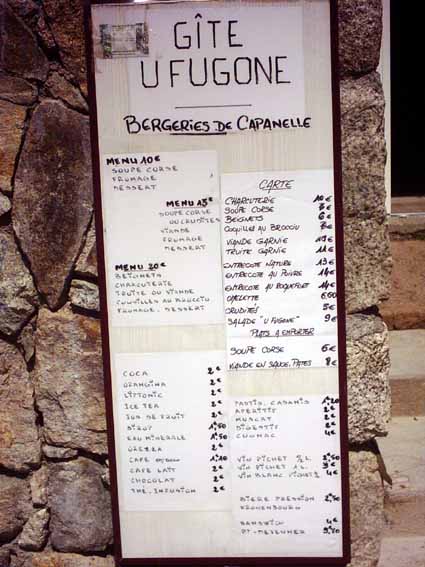 GÎTE
U FUGONE
BERGERIES DE CAPANELLE
MENU 10€
SOUPE CORSE
FROMAGE
DESSERT
MENU 15€
SOUPE CORSE
OU CRUDITÉS
VIANDE
FROMAGE
DESSERT
MENU 20€
BEIGNETS
CHARCUTERIE
TRUITE OU VIANDE
COQUILLES AU BROCCIU
FROMAGE. DESSERT
CARTE
CHARCUTERIE 10€
SOUPE CORSE
BEIGNETS 6€
COQUILLES AU BROCCIU
VIANDE GARNIE
TRUITE GARNIE 11€
ENTRECOTE NATURE 13€
ENTRECOTE AU POIVRE 14€
ENTRECOTE AU ROQUEFORT 14€
OMELETTE
CRUDITÉS 5€
SALADE "U FUGONE" 9€
PLATS A EMPORTER
SOUPE CORSE 6€
VIANDE EN SAUCE, PATES 8€
COCA 2€
ORANGINA 2€
LIPTONIC 2€
ICE TEA 2€
JUS DE FRUIT 2€
SIROP 1€50
EAU MINERALE
OREZZA 2€
CAFE 1€10
CAFE LAIT 2€
CHOCOLAT 2€
THE, INFUSION 2€
PASTIS, CASANIS 1€20
APERITIFS 2€
MUSCAT 2€
DIGESTIFS 2€
COGNAC 4€
VIN PICHET
VIN PICHET 1L
VIN BLANC PICHET
BIERE PRESSION 2€50
KRONENBOURG
SANDWICH 4€
PT-DEJEUNER